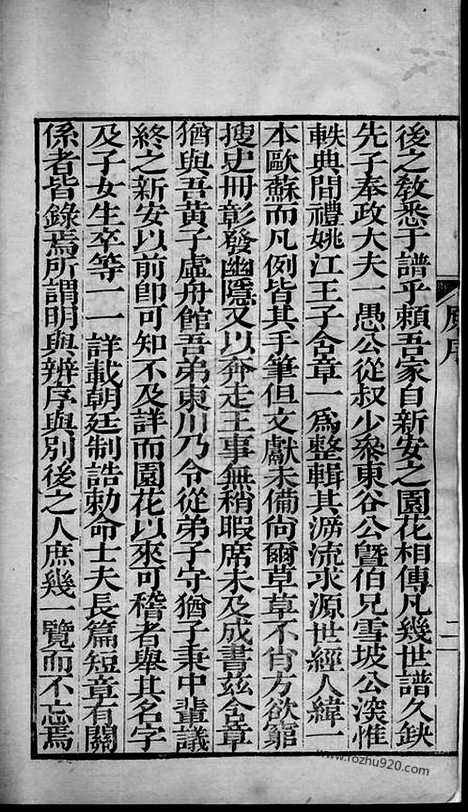 後之教悉于譜乎頼吾家自新安之園花相傳凡幾世譜久缺
先子奉政大夫一愚公從叔少叅東谷公曁伯兄雪坡公深惟
軼典間禮姚江王子含章一爲整輯其泝流求源世經人緯一
本歐蘇而凡例皆其手筆但文獻未備尙爾草草不肖方欲窮
搜史冊彰發幽隱又以奔走王事無稍暇席未及成書茲含章
猶與吾黃子虛舟館吾弟東川乃令從弟子守猶子秉中輩議
終之新安以前卽可知不及詳而園花以來可稽者舉其名字
及子女生卒等一一詳載朝廷制誥勅命士夫長篇短章有關
係者皆錄焉所謂明與辨序與別後之人庶幾一覽而不忘焉
序
二
www.fozhu920.com